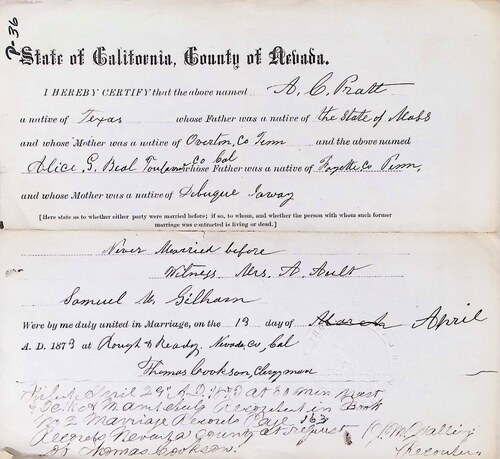 P-36
State of California, County of Nevada.
I HEREBY CERTIFY that the above named A. C. Pratt
a native of Texas whose Father was a native of the State of Mass
and whose Mother was a native of Overton, Co Tenn and the above named
Alice G. Beal Co Cal whose Father was a native of Fayette, Co Penn,
and whose Mother was a native of Dubuque Iaway
[Here state as to whether either party were married before; if so, to whom, and whether the person with whom such former
marriage was contracted is living or dead.]
Never Married before
Witness Mrs. A. Ault
Samuel M. Gilham
Were by me duly united in Marriage, on the 13 day of March April
A. D. 1873 at Rough & Ready, Nevada, Co, Cal
Thomas Cookson, Clergyman
April 29th A.D. 1873 at 30 min past
Recorded in Book
No 2 Marriage Records Page 163
Records Nevada County at request
of Thomas Cookson.
Recorder